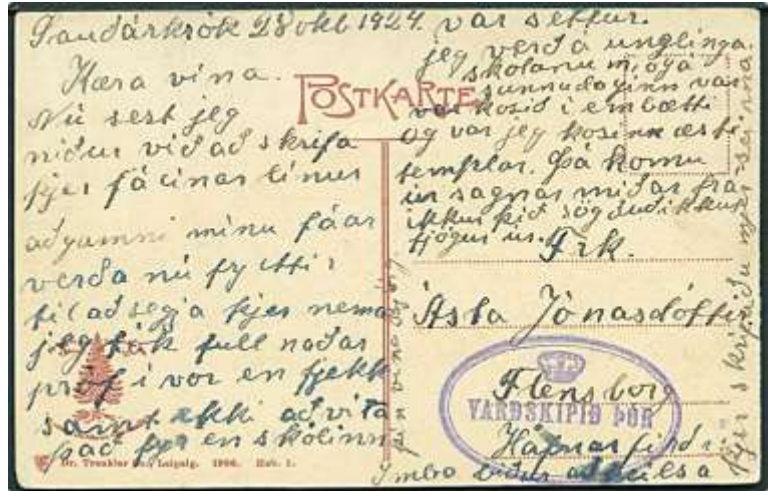 Sauðárkrók 28 okt 1924.
Kæra vina.
Nú sest jeg
niður við að skrifa
þjer fácinar línur
að gamni mínu fáar
verða nú frjettir
til að segja þjer nema
jeg tók full naðar
próf í vor en fjekk
samt ekki að vita
það fyr en skólinn
var settur.
jeg verð á unglinga
skolanum
sunnudaginn var
var kosið i embætti
og var jeg kosinn æsti
templar. Þá komu
úr sagnar miðar frá
ikkur þið sögðuð ikkur
fjögur úr.
POSTKARTE
Frk.
Ásta Jónasdóttir
Flensborg
Hafnarfirði
VARÐSKIPIÐ ÞÓR
Imba biður að heilsa
þjer skrifaðu mjer
Dr. Trenkler Co., Leipzig. 1906.